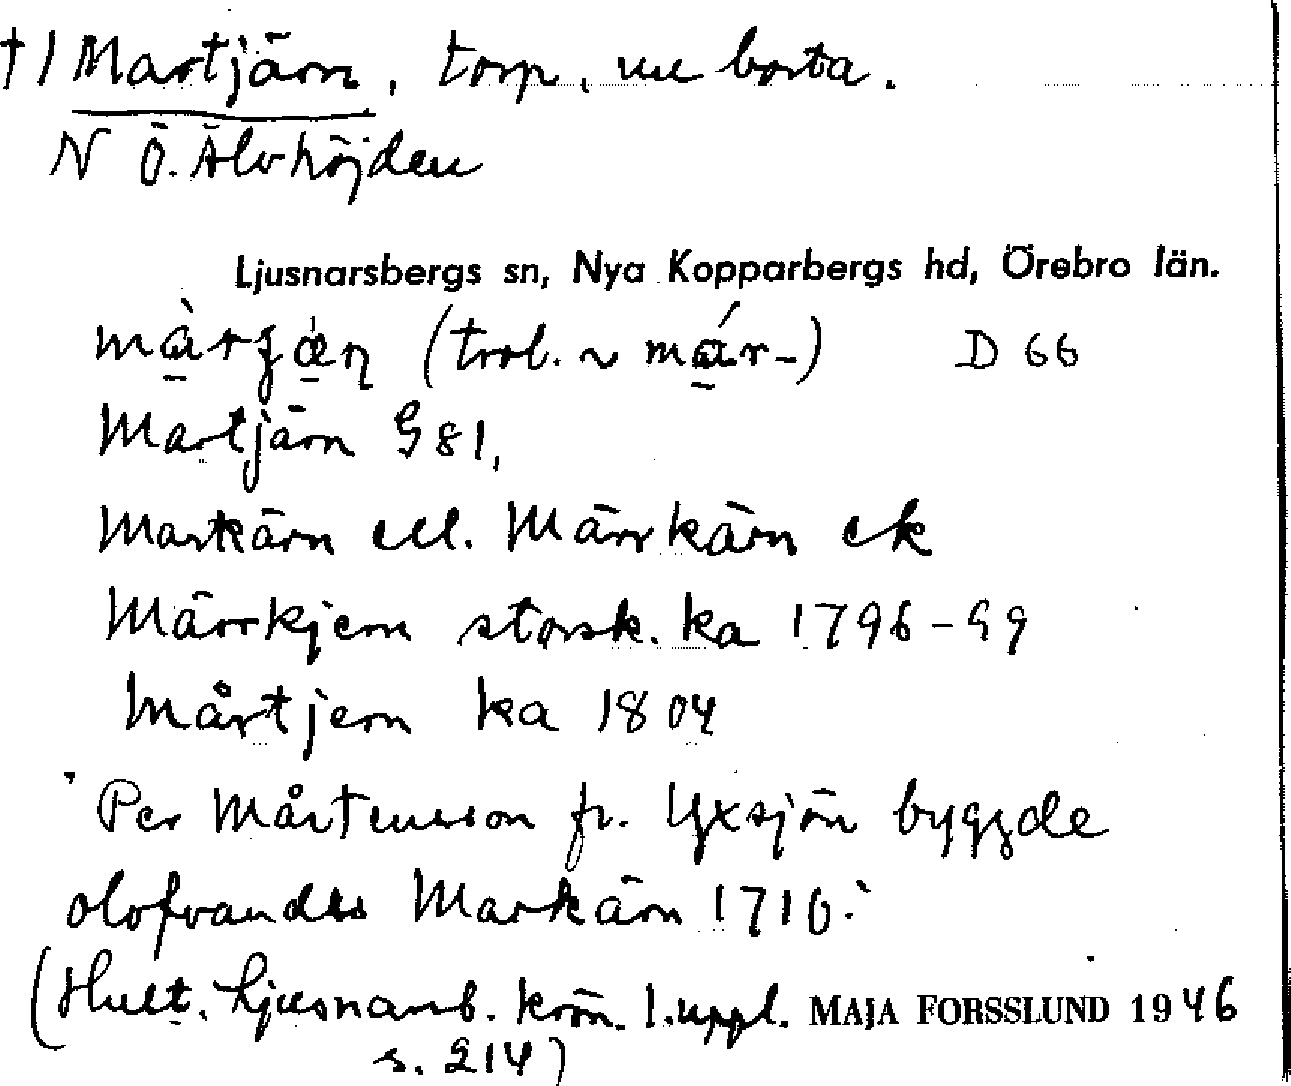 † 1 Martjärn, torp, nu borta.
N Ö. Älvhöjden
Ljusnarsbergs sn, Nya Kopparbergs hd, Örebro län.
(trol. ~ már-) D 66
Martjärn G 81,
Martkärn ell. Märrkärn ek
Märrkjern storsk. ka 1796-99
Mårtjern ka 1804
"Per Mårtensson fr. Yxsjön byggde
Markärn 1710."
(Hult. Ljusnarsb. krön. 1. uppl. MAJA FORSSLUND 1946
s. 214)